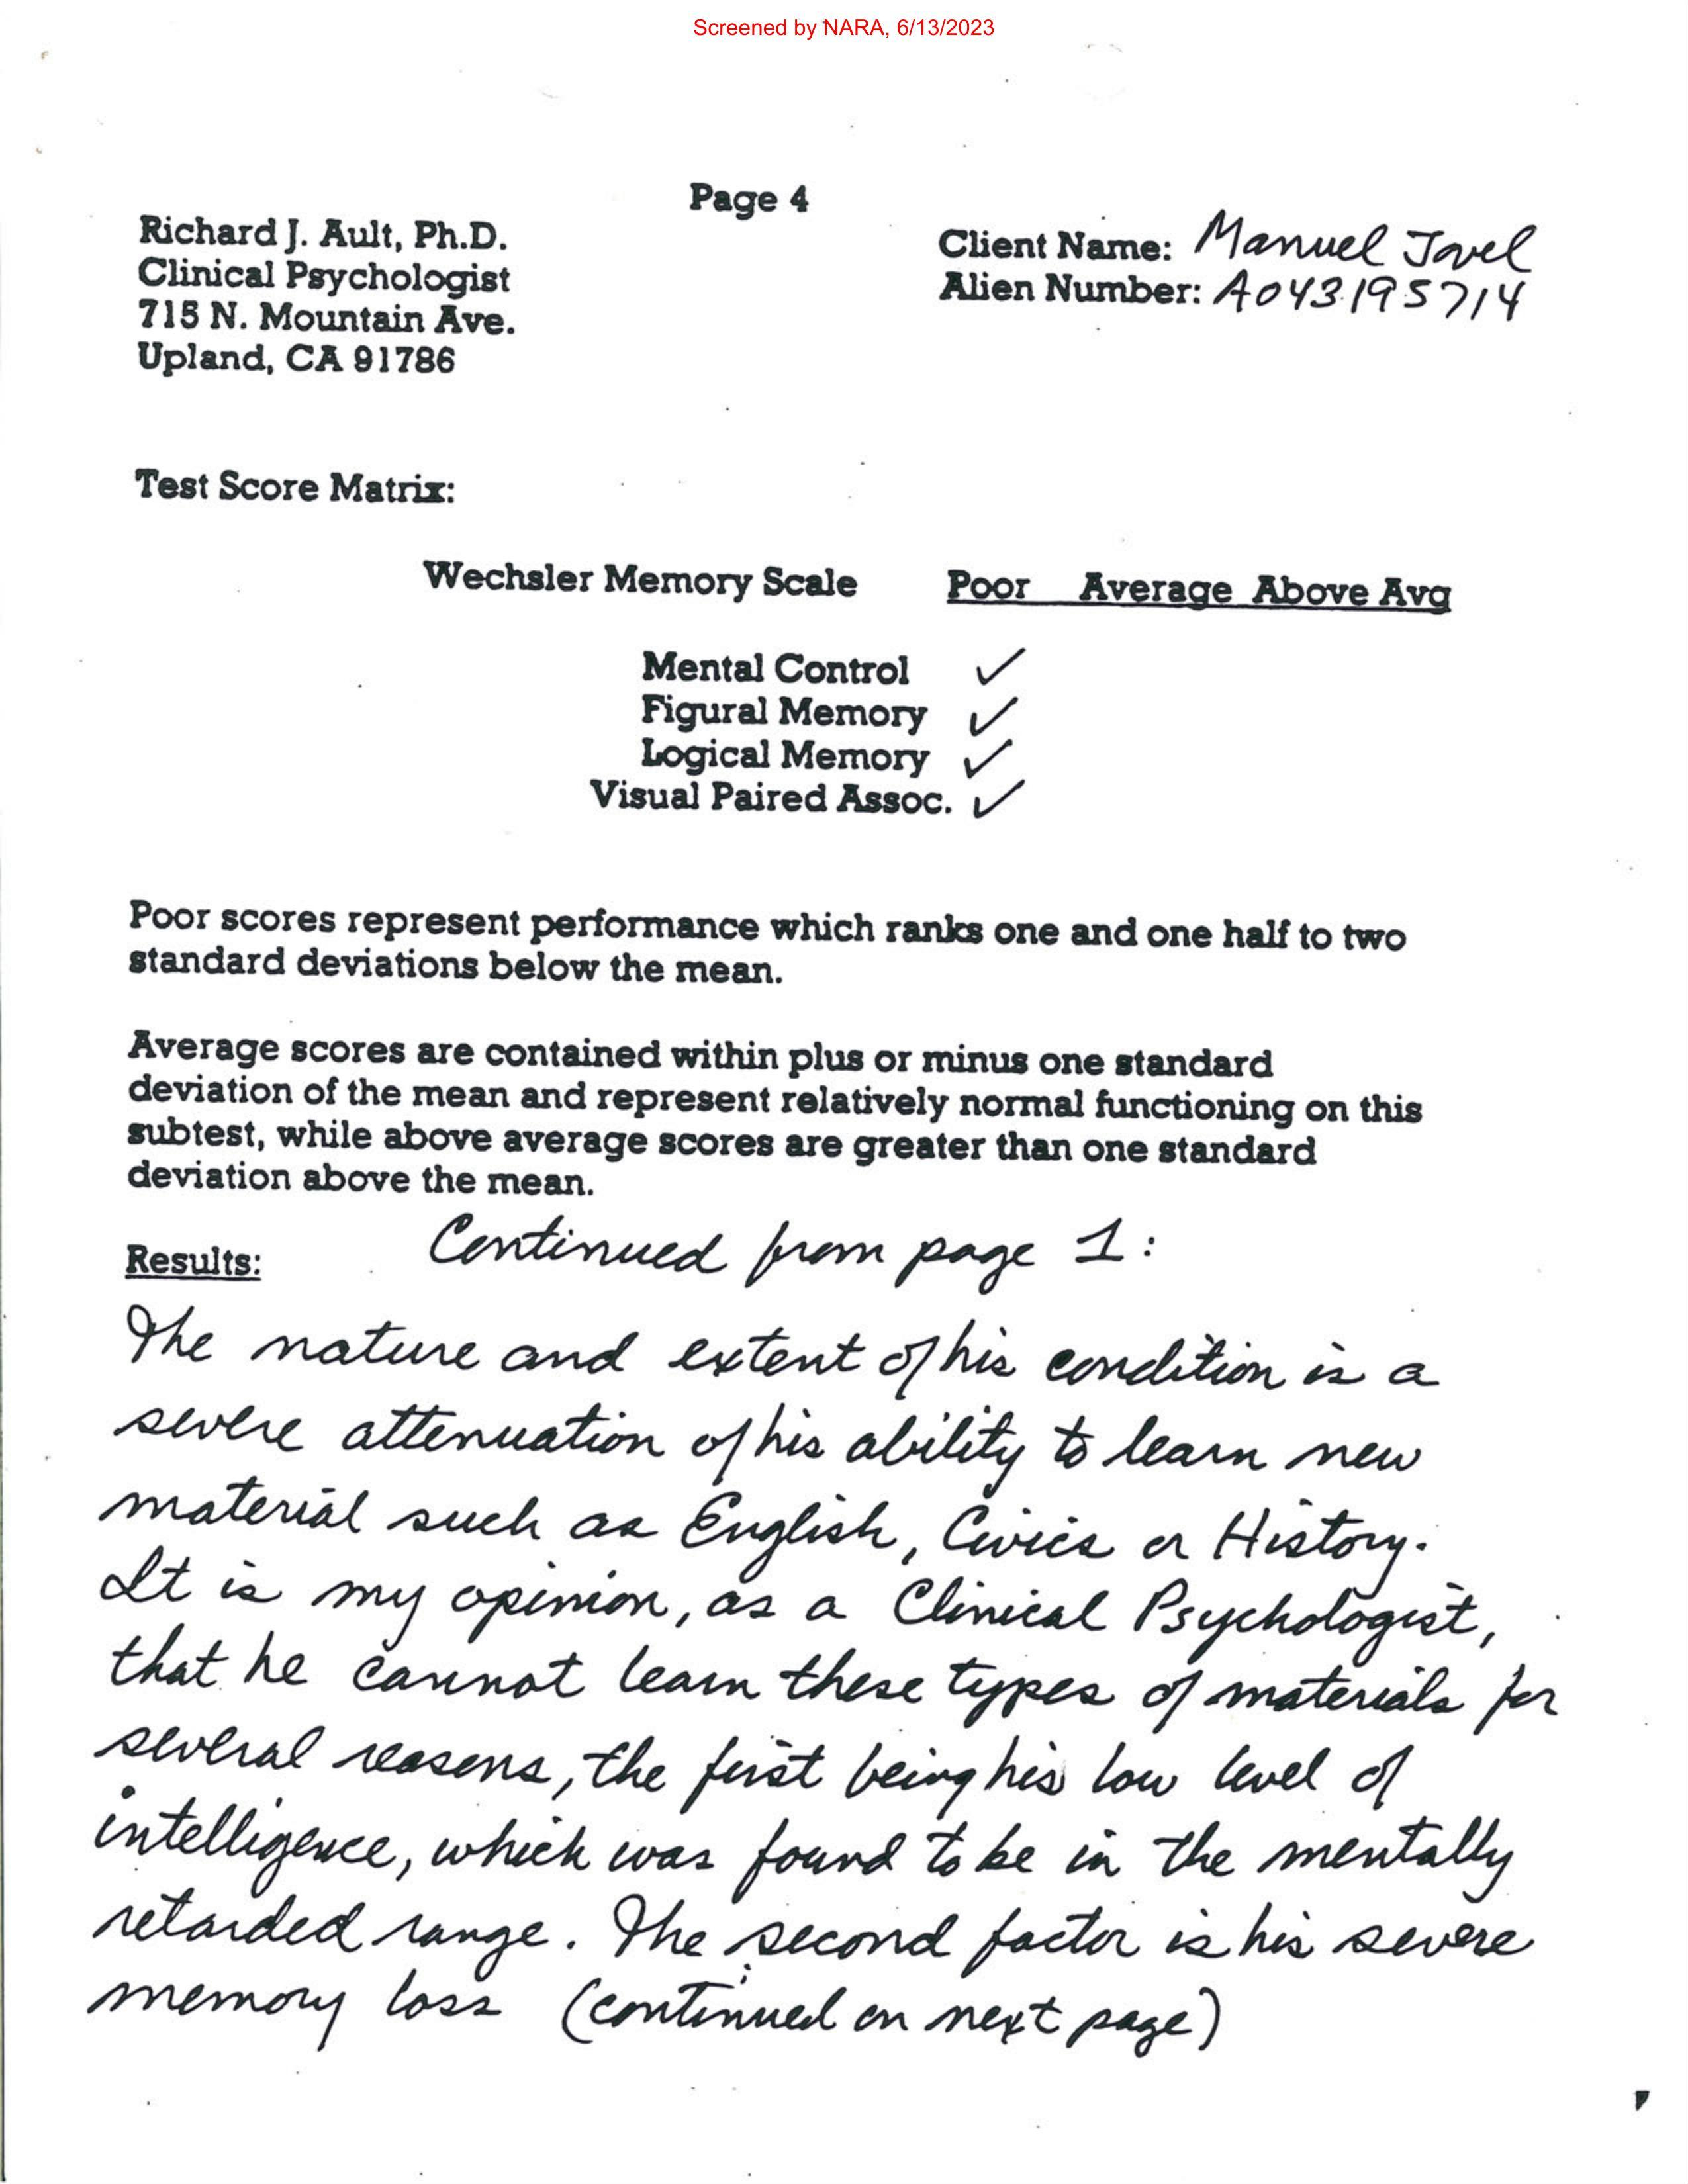 Screened by NARA, 6/13/2023
Page 4
Richard J. Ault, Ph.D.
Clinical Psychologist
715 N. Mountain Ave.
Upland, CA 91786
Client Name: Manuel Jovel
Alien Number: A043195714
Test Score Matrix:
Wechsler Memory Scale Poor Average Above Avg
Mental Control ✓
Figural Memory ✓
Logical Memory ✓
Visual Paired Assoc. ✓
Poor scores represent performance which ranks one and one half to two
standard deviations below the mean.
Average scores are contained within plus or minus one standard
deviation of the mean and represent relatively normal functioning on this
subtest, while above average scores are greater than one standard
deviation above the mean.
Results: Continued from page 1:
The nature and extent of his condition is a
severe attenuation of his ability to learn new
material such as English, Civics or History.
It is my opinion, as a Clinical Psychologist,
that he cannot learn these types of materials for
several reasons, the first being his low level of
intelligence, which was found to be in the mentally
retarded range. The second factor is his severe
memory loss (continued on next page)